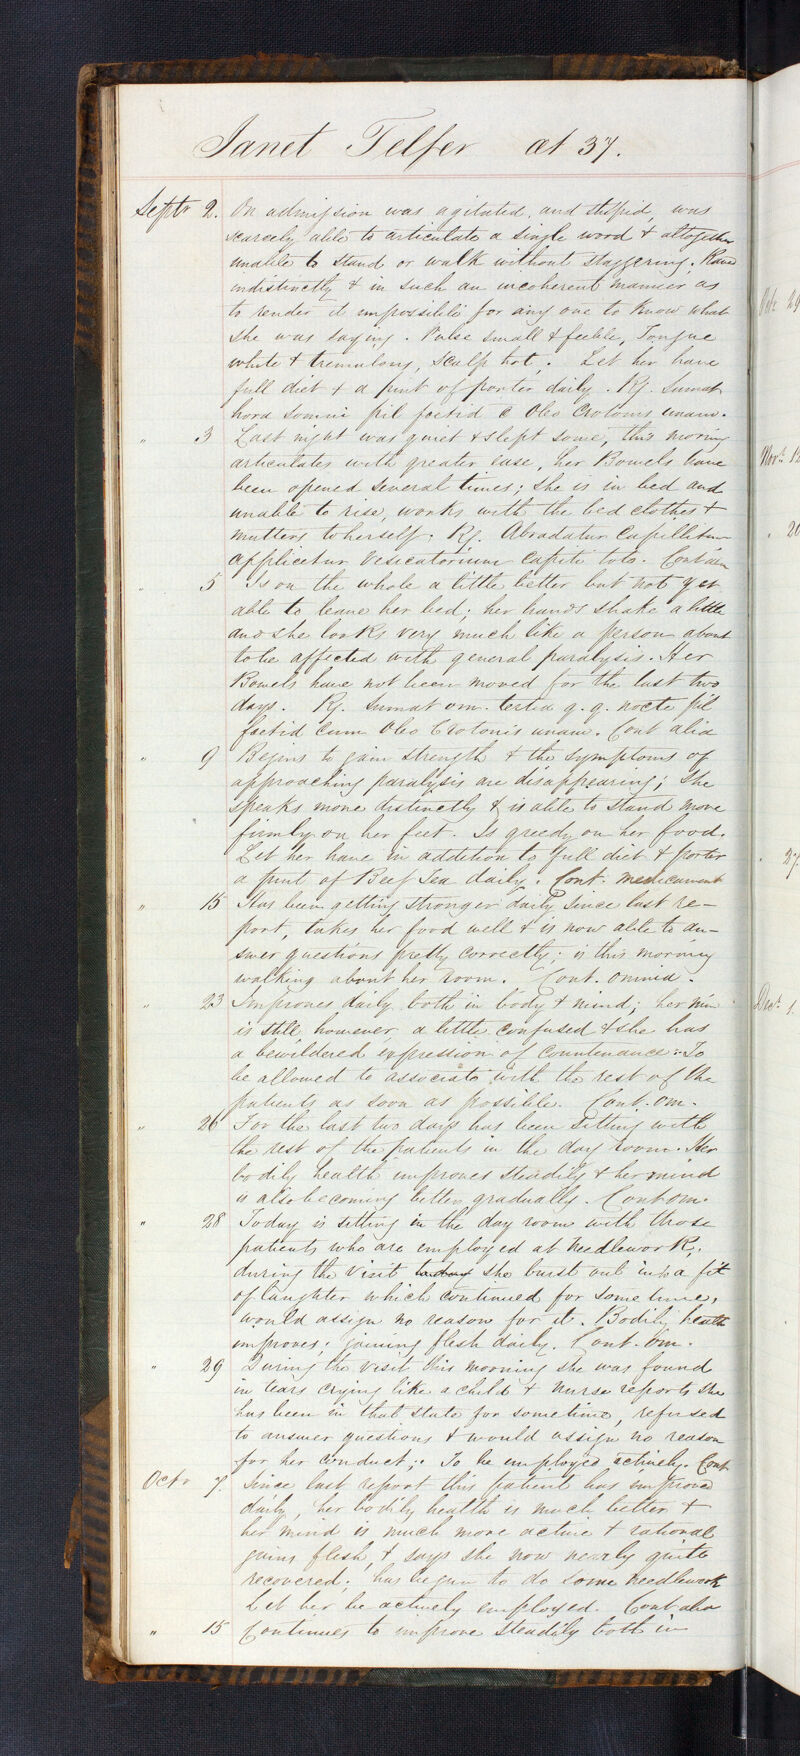 Janet Telfer æt 37.
Septr 2. On admission was agitated, and stupid, was
scarcely able to articulate a single word & altogether
unable to stand or walk without staggering. Raved
indistinctly & in such an incoherent manner as
to render it impossible for any one to know what
she was saying. Pulse small & feeble, Tongue
white & tremulous, scalp hot. Let her have
full diet & a pint of porter daily. Rj. Sumat
hora somni pil foetid c Oleo Crotonis unam.
" 3 Last night was quiet & slept some, this morning
articulates with greater ease, her Bowels have
been opened several times; she is in bed and
unable to rise, works with the bed clothes &
mutters to herself. Rj. Abradatur Capillitium
applicetur Vesicatorium capiti toto.
" 5 Is on the whole a little better but not yet
able to leave her bed; her hands shake a little
and she looks very much like a person about
to be affected with general paralysis. Her
Bowels have not been moved for the last two
days. Rj. Sumat om. tertia q. q. nocte pil
foetid cum Oleo Crotonis unam. Cont alia
" 9 Begins to gain strength & the symptoms of
approaching paralysis are disappearing; She
speaks more distinctly & is able to stand more
firmly on her feet. Is greedy on her food.
Let her have in addition to full diet & porter
a pint of Beef Tea daily. Cont. medicament
" 15 Has been getting stronger daily since last re-
port, takes her food well & is now able to an-
swer questions pretty correctly; is this morning
walking about her room. Cont. omnia.
" 23 Improves daily both in body & mind; her min
is still however a little confused & she has
a bewildered expression of countenance. To
be allowed to associate with the rest of the
patients as soon as possible. Cont. om.
" 26 For the last two days has been sitting with
the rest of the patients in the day room. Her
bodily health improves steadily & her mind
is also becoming better gradually. Cont om.
" 28 Today is sitting in the day room with those
patients who are employed at needlework.
during the visit today she burst out into a fit
of laughter which continued for some time,
would assign no reason for it. Bodily health
improves; gaining flesh daily. Cont. om.
" 29 During the visit this morning she was found
in tears crying like a child & nurse reports she
has been in that state for sometime, refused
to answer questions & would assign no reason
for her conduct; To be employed actively. Cont
Octr 7. Since last report this patient has improved
daily, her bodily health is much better &
her mind is much more active & rational
gains flesh, & says she now nearly quite
recovered. has begun to do some needlework
Let her be actively employed. Cont alia
" 15 Continues to improve steadily both in
29
Novr. 12
" 20
" 27
Decr. 1